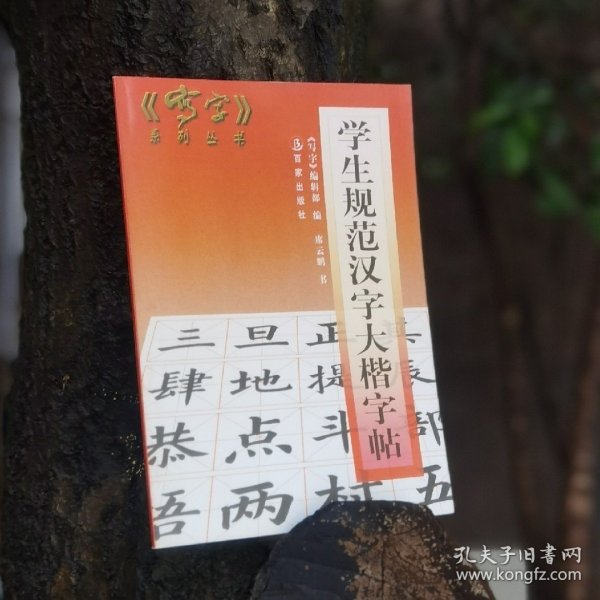 《写字》
系列丛书
学生规范汉字大楷字帖
《写字》编辑部 编 席云鹏 书
百家出版社
三旦正其
肆地提辰
恭点斗部
吾两村五
孔夫子旧书网
www.kongfz.com